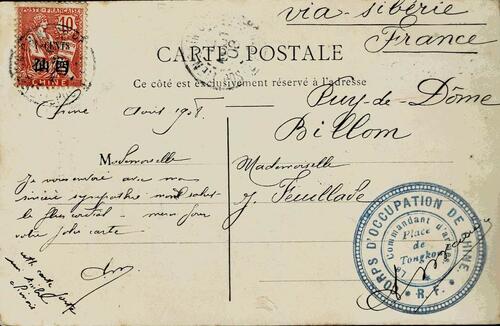 via - sibérie
France
POSTE FRANÇAISE
40
CENTS
CHINE
CARTE POSTALE
Ce côté est exclusivement réservé à l'adresse
Puy-de-Dôme
Billom
Mademoiselle
J. Feuillade
Chine Avril 1908
Mademoiselle
Je vous envoie avec ma
sincère sympathie mon salut
le plus cordial - merci pour
votre jolie carte
CORPS D'OCCUPATION DE CHINE
Commandant d'armes
Place
de
Tongkou
R.F.